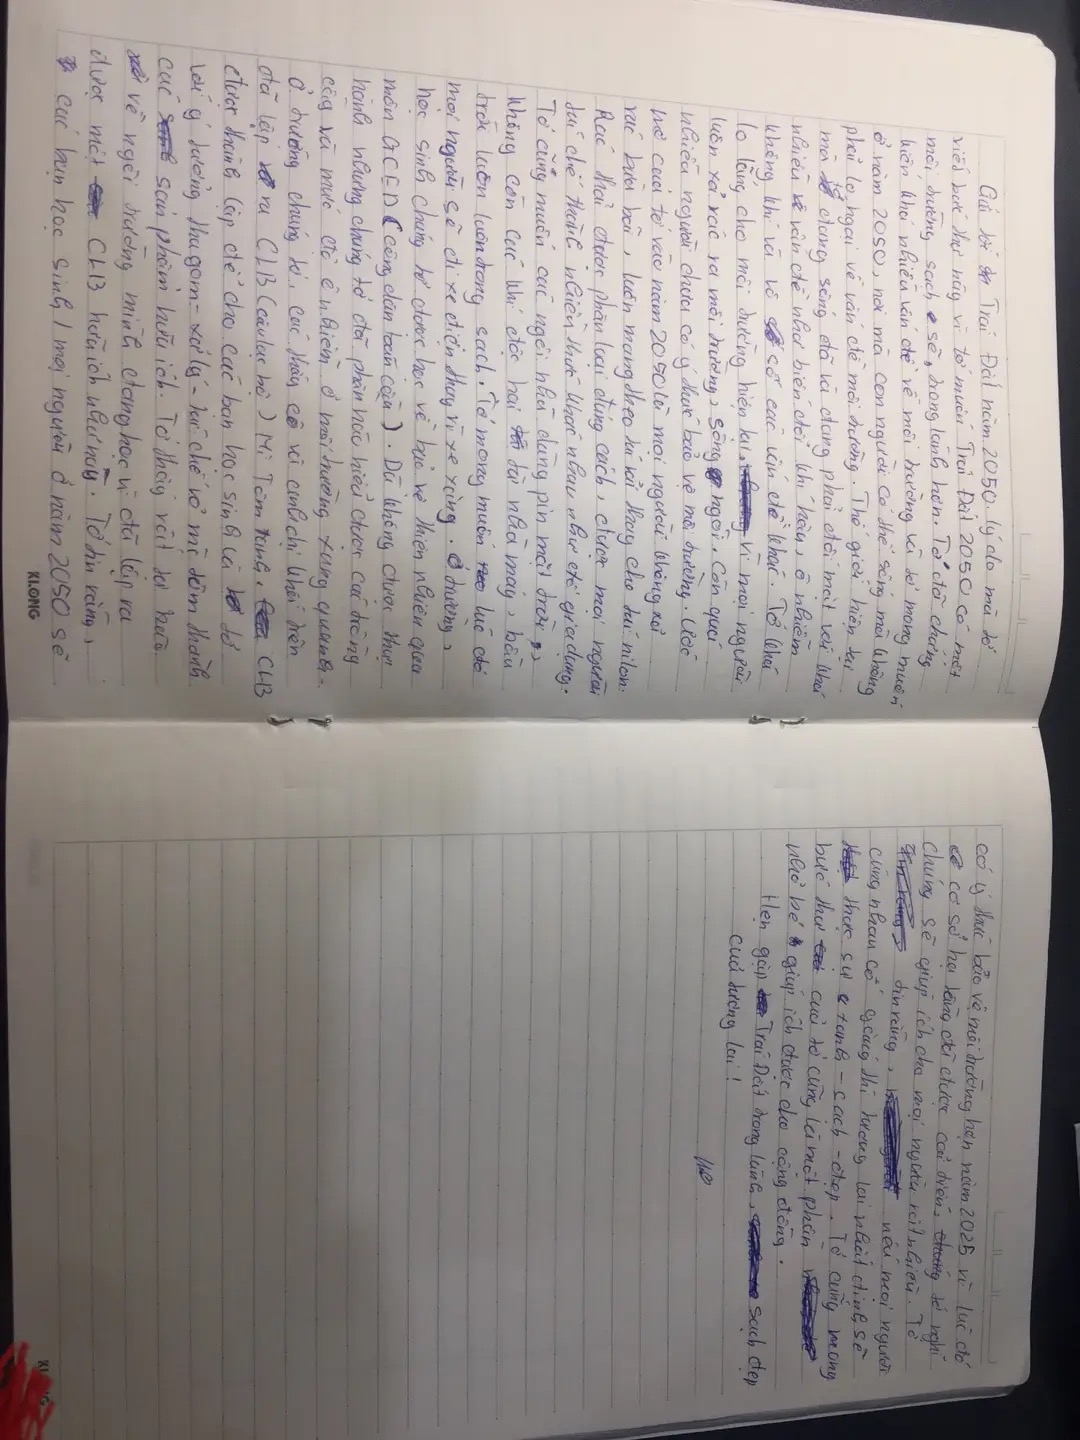 Gửi tới Trái Đất năm 2050. Lý do mà tớ
viết bức thư này vì tớ muốn Trái Đất 2050 có một
môi trường sạch sẽ, trong lành hơn. Tớ đã chứng
kiến khá nhiều vấn đề về môi trường và tớ mong muốn
ở năm 2050, nơi mà con người có thể sống mà không
phải lo ngại về vấn đề môi trường. Thế giới hiện tại
mà tớ đang sống đã và đang phải đối mặt với khá
nhiều về vấn đề như biến đổi khí hậu, ô nhiễm
không khí và vô số các vấn đề khác. Tớ khá
lo lắng cho môi trường hiện tại, vì mọi người
luôn xả rác ra môi trường, sông ngòi. Còn quá
nhiều người chưa có ý thức bảo vệ môi trường. Ước
mơ của tớ vào năm 2050 là mọi người không xả
rác bừa bãi, luôn mang theo túi vải thay cho túi nilon.
Rác thải được phân loại đúng cách, được mọi người
tái chế thành nhiều thứ khác nhau như đồ gia dụng.
Tớ cũng muốn các ngôi nhà dùng pin mặt trời,
không còn các khí độc hại từ nhà máy, bầu
trời luôn luôn trong sạch. Tớ mong muốn lúc đó
mọi người sẽ đi xe điện thay vì xe xăng. Ở trường,
học sinh chúng tớ được học về bảo vệ thiên nhiên qua
môn GCED (công dân toàn cầu). Dù không được thực
hành nhưng chúng tớ đã phần nào hiểu được cái đáng
của và mức độ ô nhiễm ở môi trường xung quanh.
Ở trường chúng tớ, các thầy cô và anh chị khối trên
đã lập ra CLB (câu lạc bộ) Mi Tôm xanh. CLB
được thành lập để cho các bạn học sinh và tớ
với ý tưởng thu gom - xử lý - tái chế vỏ mì tôm thành
các sản phẩm hữu ích. Tớ thấy rất tự hào
về ngôi trường mình đang học vì đã lập ra
được một CLB hữu ích như này. Tớ tin rằng,
các bạn học sinh / mọi người ở năm 2050 sẽ
XLONG
có ý thức bảo vệ môi trường hơn năm 2025 vì lúc đó
cơ sở hạ tầng đã được cải thiện, tớ nghĩ
chúng sẽ giúp ích cho mọi người rất nhiều. Tớ
tin rằng, nếu mọi người
cùng nhau cố gắng thì tương lai nhất định sẽ
thực sự xanh - sạch - đẹp. Tớ cũng mong
bức thư của tớ cũng là một phần
nhỏ bé giúp ích được cho cộng đồng.
Hẹn gặp Trái Đất trong lành, sạch đẹp
của tương lai!